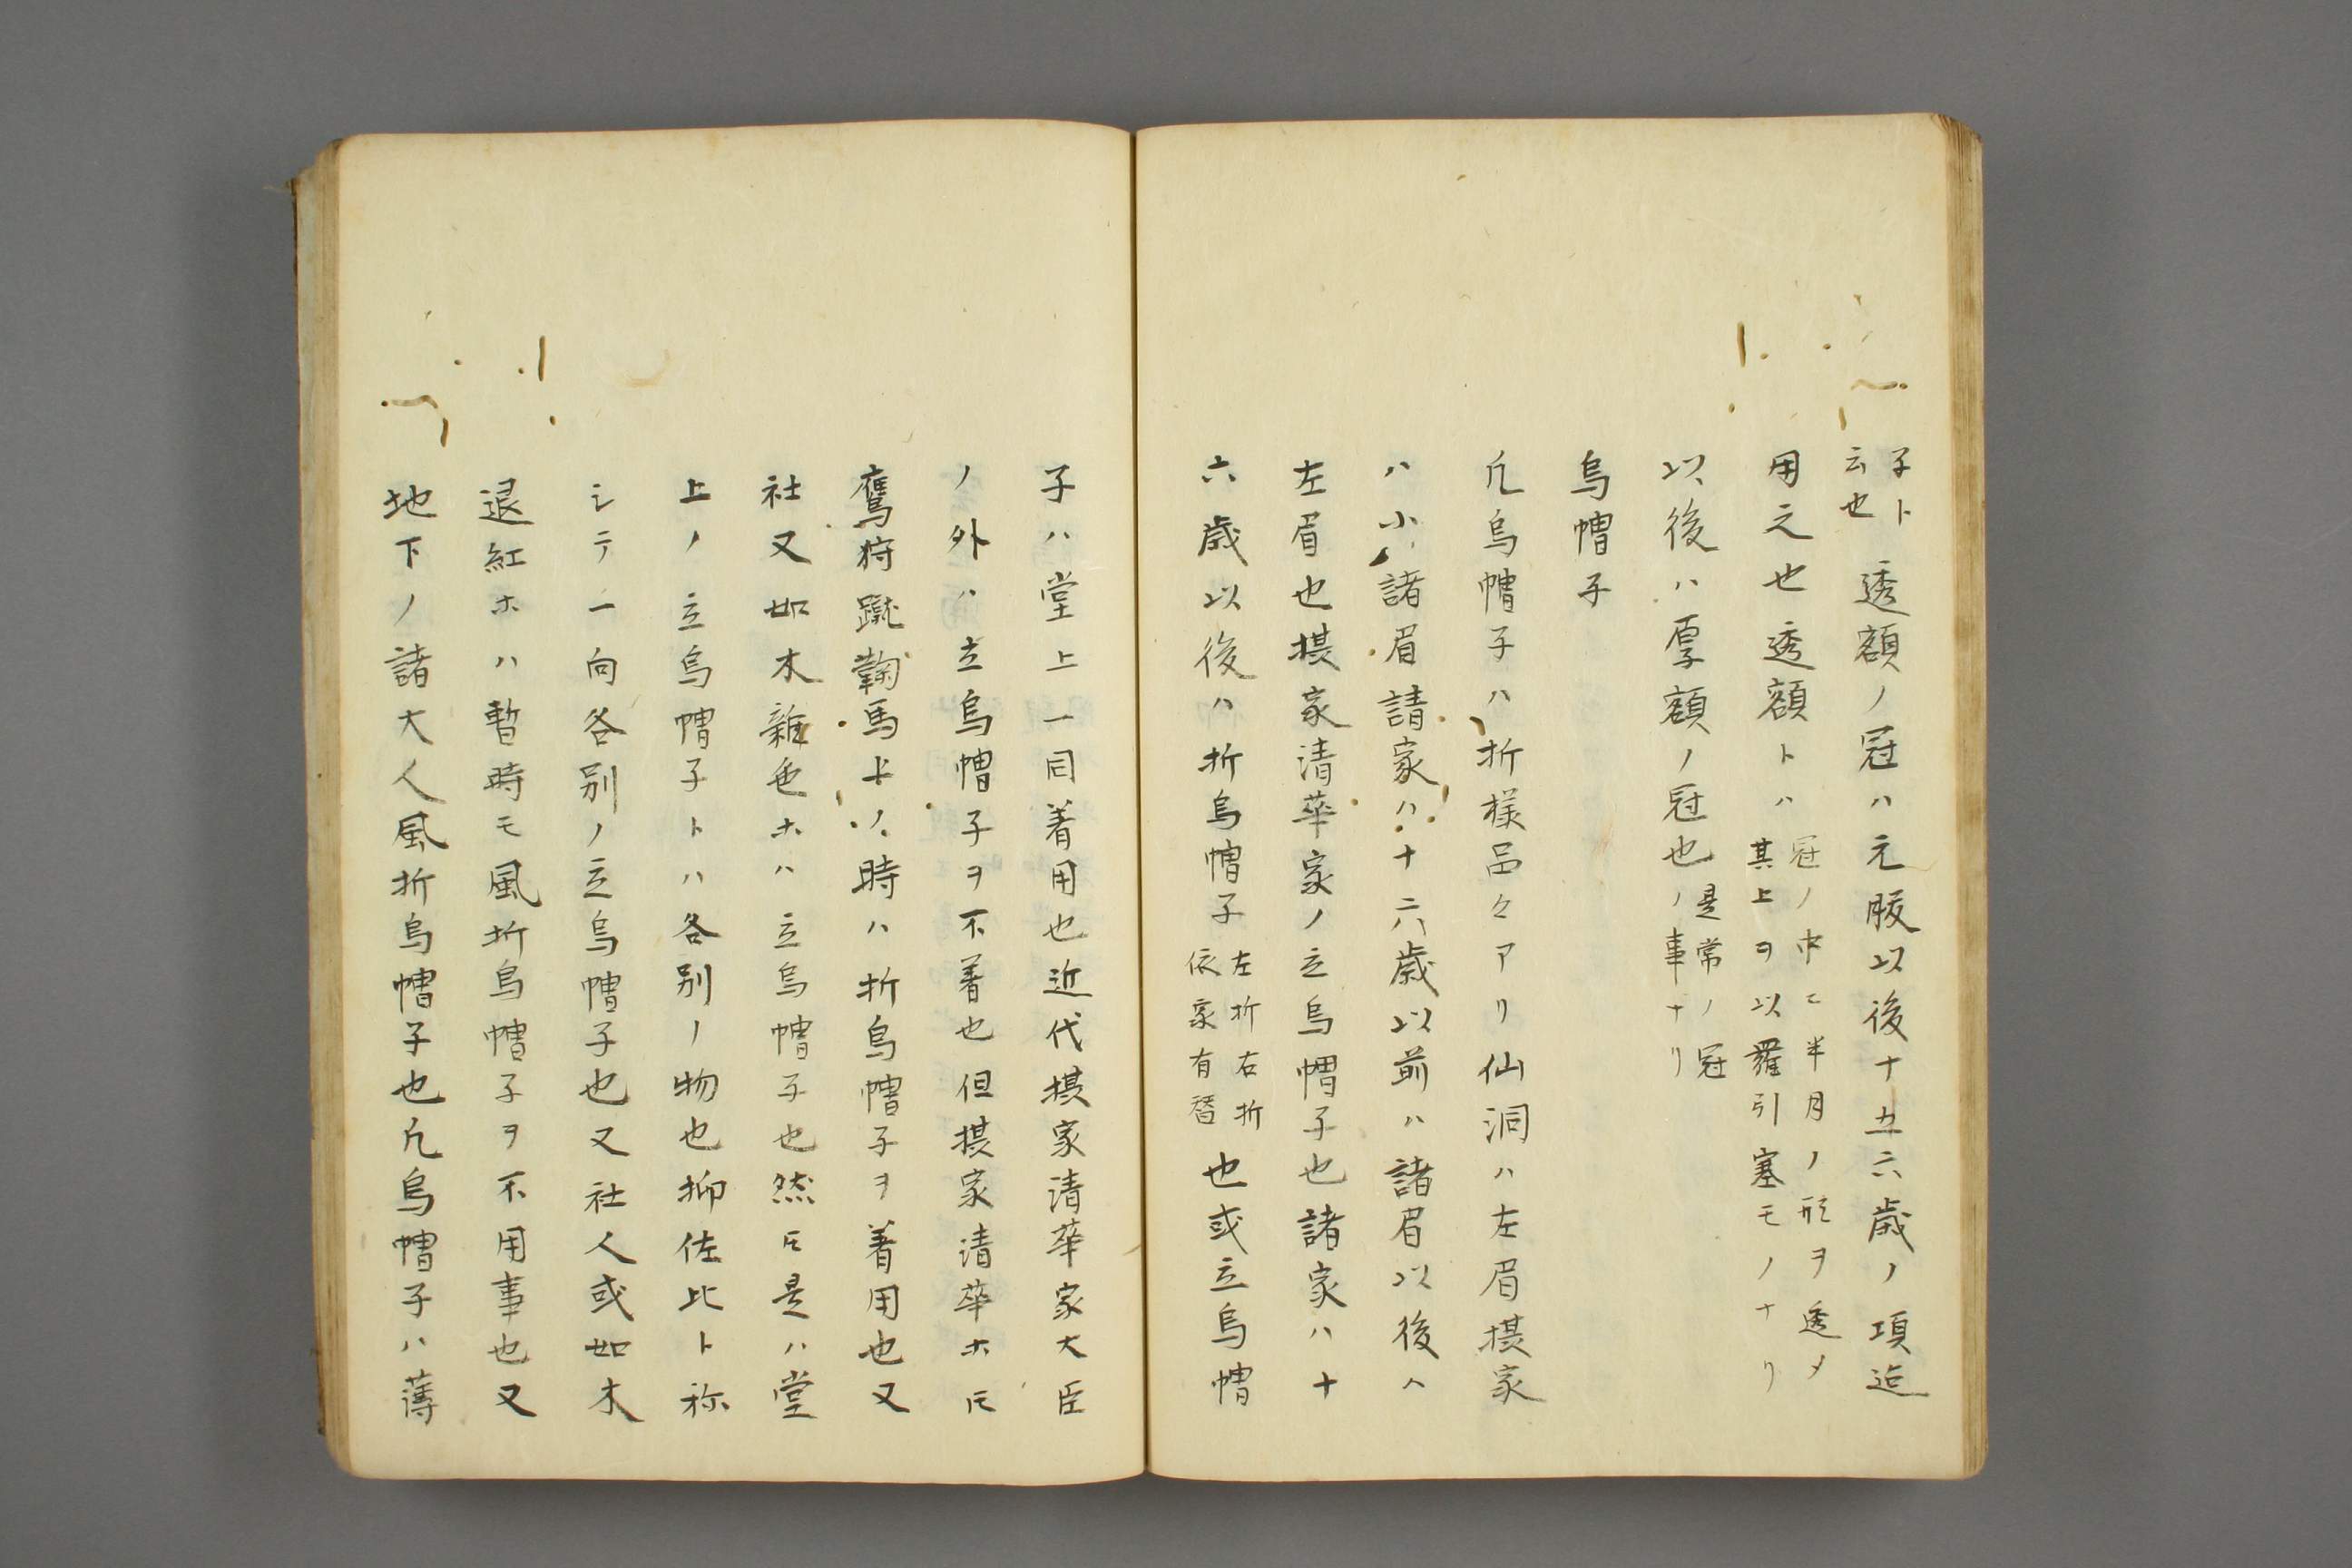 子ト云也 透額ノ冠ハ元服以後十五六歳ノ項迄
用之也透額トハ 冠ノ中ニ半月ノ形ヲ透メ其上ヲ以羅引塞モノナリ
以後ハ厚額ノ冠也 是常ノ冠ノ事ナリ
烏帽子
凡烏帽子ハ折様品々アリ仙洞ハ左眉摂家
ハ小諸眉請家ハ十六歳以前ハ諸眉以後ハ
左眉也摂家清華家ノ立烏帽子也諸家ハ十
六歳以後ハ折烏帽子 左折右折依家有替 也或立烏帽
子ハ堂上一同着用也近代摂家清華家大臣
ノ外ハ立烏帽子ヲ不着也但摂家清華ホ𪜈
鷹狩蹴鞠馬上ノ時ハ折烏帽子ヲ着用也又
社又如木雑色ホハ立烏帽子也然𪜈是ハ堂
上ノ立烏帽子トハ各別ノ物也抑佐比ト称
シテ一向各別ノ立烏帽子也又社人或如木
退紅ホハ暫時モ風折烏帽子ヲ不用事也又
地下ノ諸大人風折烏帽子也凡烏帽子ハ薄